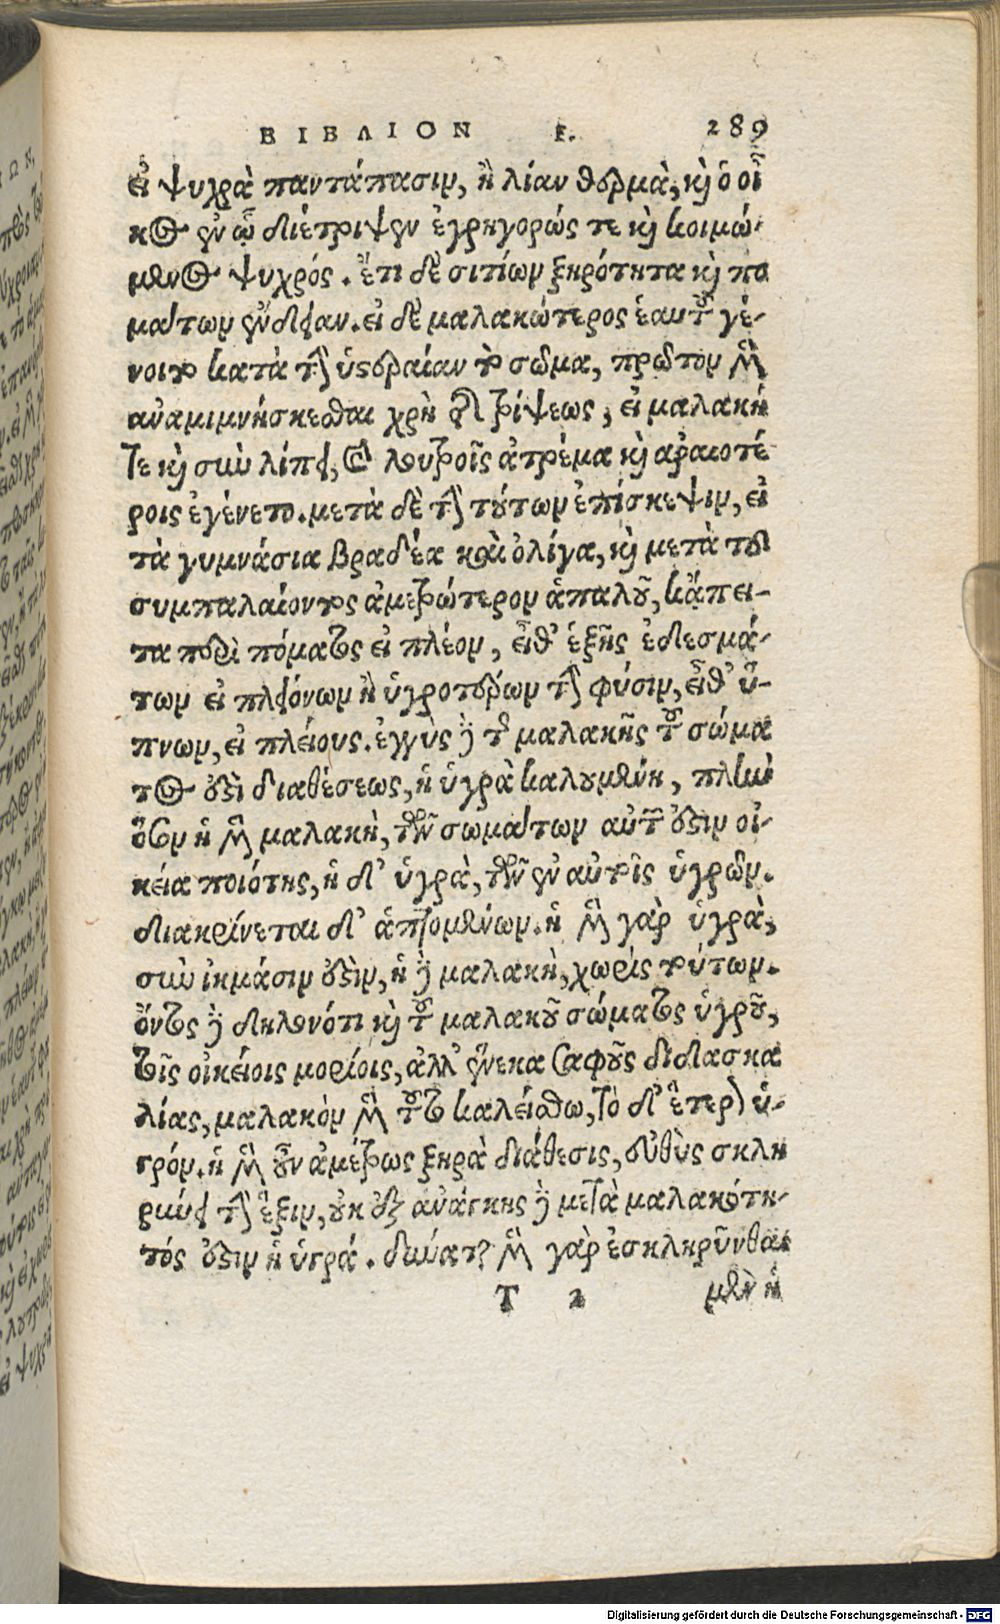 ΒΙΒΛΙΟΝ Ε. 289
εἰ ψυχρὰ παντάπασιν, ἢ λίαν θερμὰ, καὶ ὁ οἶ
κος ἐν ᾧ διέτριψεν ἐγρηγορώς τε καὶ κοιμώ-
μενος ψυχρός. ἔτι δὲ σιτίων ξηρότητα καὶ πο
μάτων ἔνδειαν. εἰ δὲ μαλακώτερος ἑαυτοῦ γέ-
νοιτο κατὰ τὴν ὑστεραίαν τὸ σῶμα, πρῶτον μὲν
ἀναμιμνήσκεσθαι χρὴ τῆς τρίψεως, εἰ μαλακή
τε καὶ σὺν λίπει, καὶ λουτροῖς ἀτρέμα καὶ ἀραιοτέ
ροις ἐγένετο. μετὰ δὲ τὴν τούτων ἐπίσκεψιν, εἰ
τὰ γυμνάσια βραδέα καὶ ὀλίγα, καὶ μετὰ τοῦ
συμπαλαίοντος ἀμετρώτερον ἁπαλοῦ, κᾄπει-
τα περὶ πόματος εἰ πλέον, εἶθ’ ἑξῆς ἐδεσμά-
των εἰ πλειόνων ἢ ὑγροτέρων τὴν φύσιν, εἶθ’ ὕ-
πνων, εἰ πλείους. ἐγγὺς δὲ τῆς μαλακῆς τοῦ σώμα
τος ἐστὶ διαθέσεως, ἡ ὑγρὰ καλουμένη, πλὴν
ὅσον ἡ μὲν μαλακὴ, τῶν σωμάτων αὐτῶν ἐστιν οἰ-
κεία ποιότης, ἡ δ’ ὑγρὰ, τῶν ἐν αὐτοῖς ὑγρῶν.
διακρίνεται δ’ ἁπτομένων. ἡ μὲν γὰρ ὑγρὰ,
σὺν ἰκμάσιν ἐστὶν, ἡ δὲ μαλακὴ, χωρίς τούτων.
ὄντος δὲ δηλονότι καὶ τοῦ μαλακοῦ σώματος ὑγροῦ,
τοῖς οἰκείοις μορίοις, ἀλλ’ ἕνεκα σαφοῦς διδασκα
λίας, μαλακὸν μὲν τοῦτο καλείσθω, τὸ δ’ ἕτερον ὑ-
γρόν. ἡ μὲν οὖν ἀμέτρως ξηρὰ διάθεσις, εὐθὺς σκλη
ρύνει τὴν ἕξιν, οὐκ ἐξ ἀνάγκης δὲ μετὰ μαλακότη-
τός ἐστιν ἡ ὑγρά. δύναται μὲν γὰρ ἐσκληρῦνθαι
T 2 μὲν ἡ
Digitalisierung gefördert durch die Deutsche Forschungsgemeinschaft - DFG